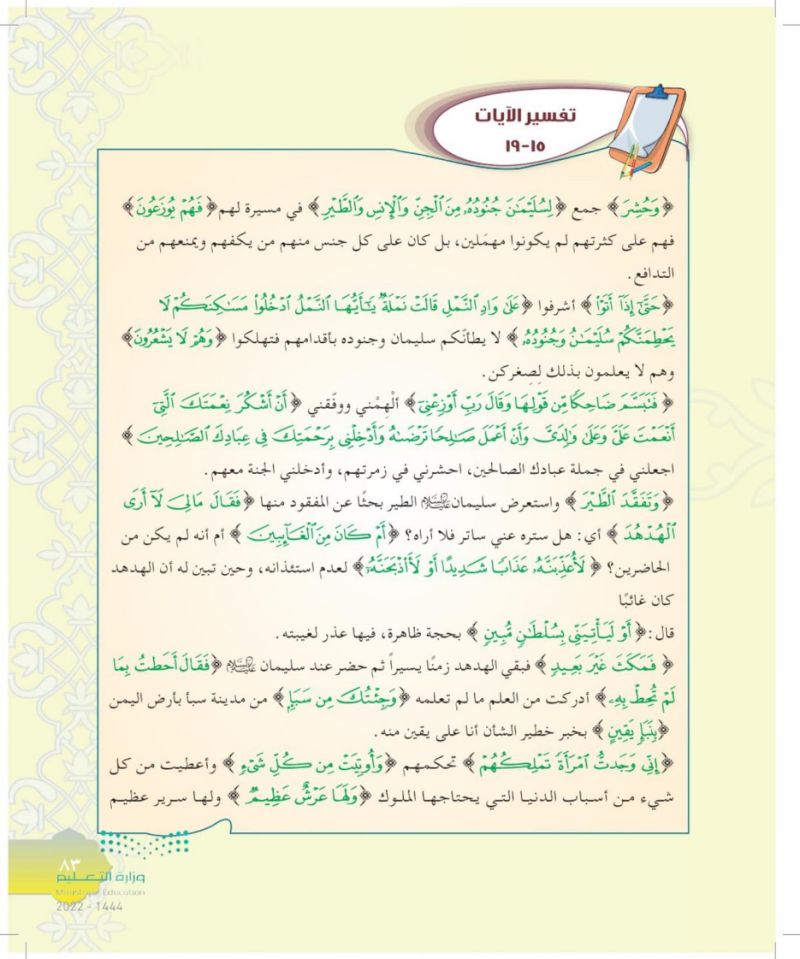 تفسير الآيات
١٥-١٩
﴿وَحُشِرَ﴾ جمع ﴿لِسُلَيْمَٰنَ جُنُودُهُۥ مِنَ ٱلْجِنِّ وَٱلْإِنسِ وَٱلطَّيْرِ﴾ في مسيرة لهم ﴿فَهُمْ يُوزَعُونَ﴾
فهم على كثرتهم لم يكونوا مهمَلين، بل كان على كل جنس منهم من يكفهم ويمنعهم من
التدافع.
﴿حَتَّىٰٓ إِذَآ أَتَوْا۟﴾ أشرفوا ﴿عَلَىٰ وَادِ ٱلنَّمْلِ قَالَتْ نَمْلَةٌ يَٰٓأَيُّهَا ٱلنَّمْلُ ٱدْخُلُوا۟ مَسَٰكِنَكُمْ لَا
يَحْطِمَنَّكُمْ سُلَيْمَٰنُ وَجُنُودُهُۥ﴾ لا يطأنّكم سليمان وجنوده بأقدامهم فتهلكوا ﴿وَهُمْ لَا يَشْعُرُونَ﴾
وهم لا يعلمون بذلك لِصِغركن.
﴿فَتَبَسَّمَ ضَاحِكًا مِّن قَوْلِهَا وَقَالَ رَبِّ أَوْزِعْنِىٓ﴾ ألْهِمْني ووفّقني ﴿أَنْ أَشْكُرَ نِعْمَتَكَ ٱلَّتِىٓ
أَنْعَمْتَ عَلَىَّ وَعَلَىٰ وَٰلِدَىَّ وَأَنْ أَعْمَلَ صَٰلِحًا تَرْضَىٰهُ وَأَدْخِلْنِى بِرَحْمَتِكَ فِى عِبَادِكَ ٱلصَّٰلِحِينَ﴾
اجعلني في جملة عبادك الصالحين، احشرني في زمرتهم، وأدخلني الجنة معهم.
﴿وَتَفَقَّدَ ٱلطَّيْرَ﴾ واستعرض سليمان عليه السلام الطير بحثًا عن المفقود منها ﴿فَقَالَ مَالِىَ لَآ أَرَى
ٱلْهُدْهُدَ﴾ أي: هل ستره عني ساتر فلا أراه؟ ﴿أَمْ كَانَ مِنَ ٱلْغَآئِبِينَ﴾ أم أنه لم يكن من
الحاضرين؟ ﴿لَأُعَذِّبَنَّهُۥ عَذَابًا شَدِيدًا أَوْ لَأَا۟ذْبَحَنَّهُۥٓ﴾ لعدم استئذانه، وحين تبين له أن الهدهد
كان غائبًا
قال: ﴿أَوْ لَيَأْتِيَنِّى بِسُلْطَٰنٍ مُّبِينٍ﴾ بحجة ظاهرة، فيها عذر لغيبته.
﴿فَمَكَثَ غَيْرَ بَعِيدٍ﴾ فبقي الهدهد زمنًا يسيراً ثم حضر عند سليمان عليه السلام ﴿فَقَالَ أَحَطتُ بِمَا
لَمْ تُحِطْ بِهِۦ﴾ أدركت من العلم ما لم تعلمه ﴿وَجِئْتُكَ مِن سَبَإٍ﴾ من مدينة سبأ بأرض اليمن
﴿بِنَبَإٍ يَقِينٍ﴾ بخبر خطير الشأن أنا على يقين منه.
﴿إِنِّى وَجَدتُّ ٱمْرَأَةً تَمْلِكُهُمْ﴾ تحكمهم ﴿وَأُوتِيَتْ مِن كُلِّ شَىْءٍ﴾ وأعطيت من كل
شيء من أسباب الدنيا التي يحتاجها الملوك ﴿وَلَهَا عَرْشٌ عَظِيمٌ﴾ ولها سرير عظيم
٨٣
وزارة التعليم
Ministry of Education
2022 - 1444